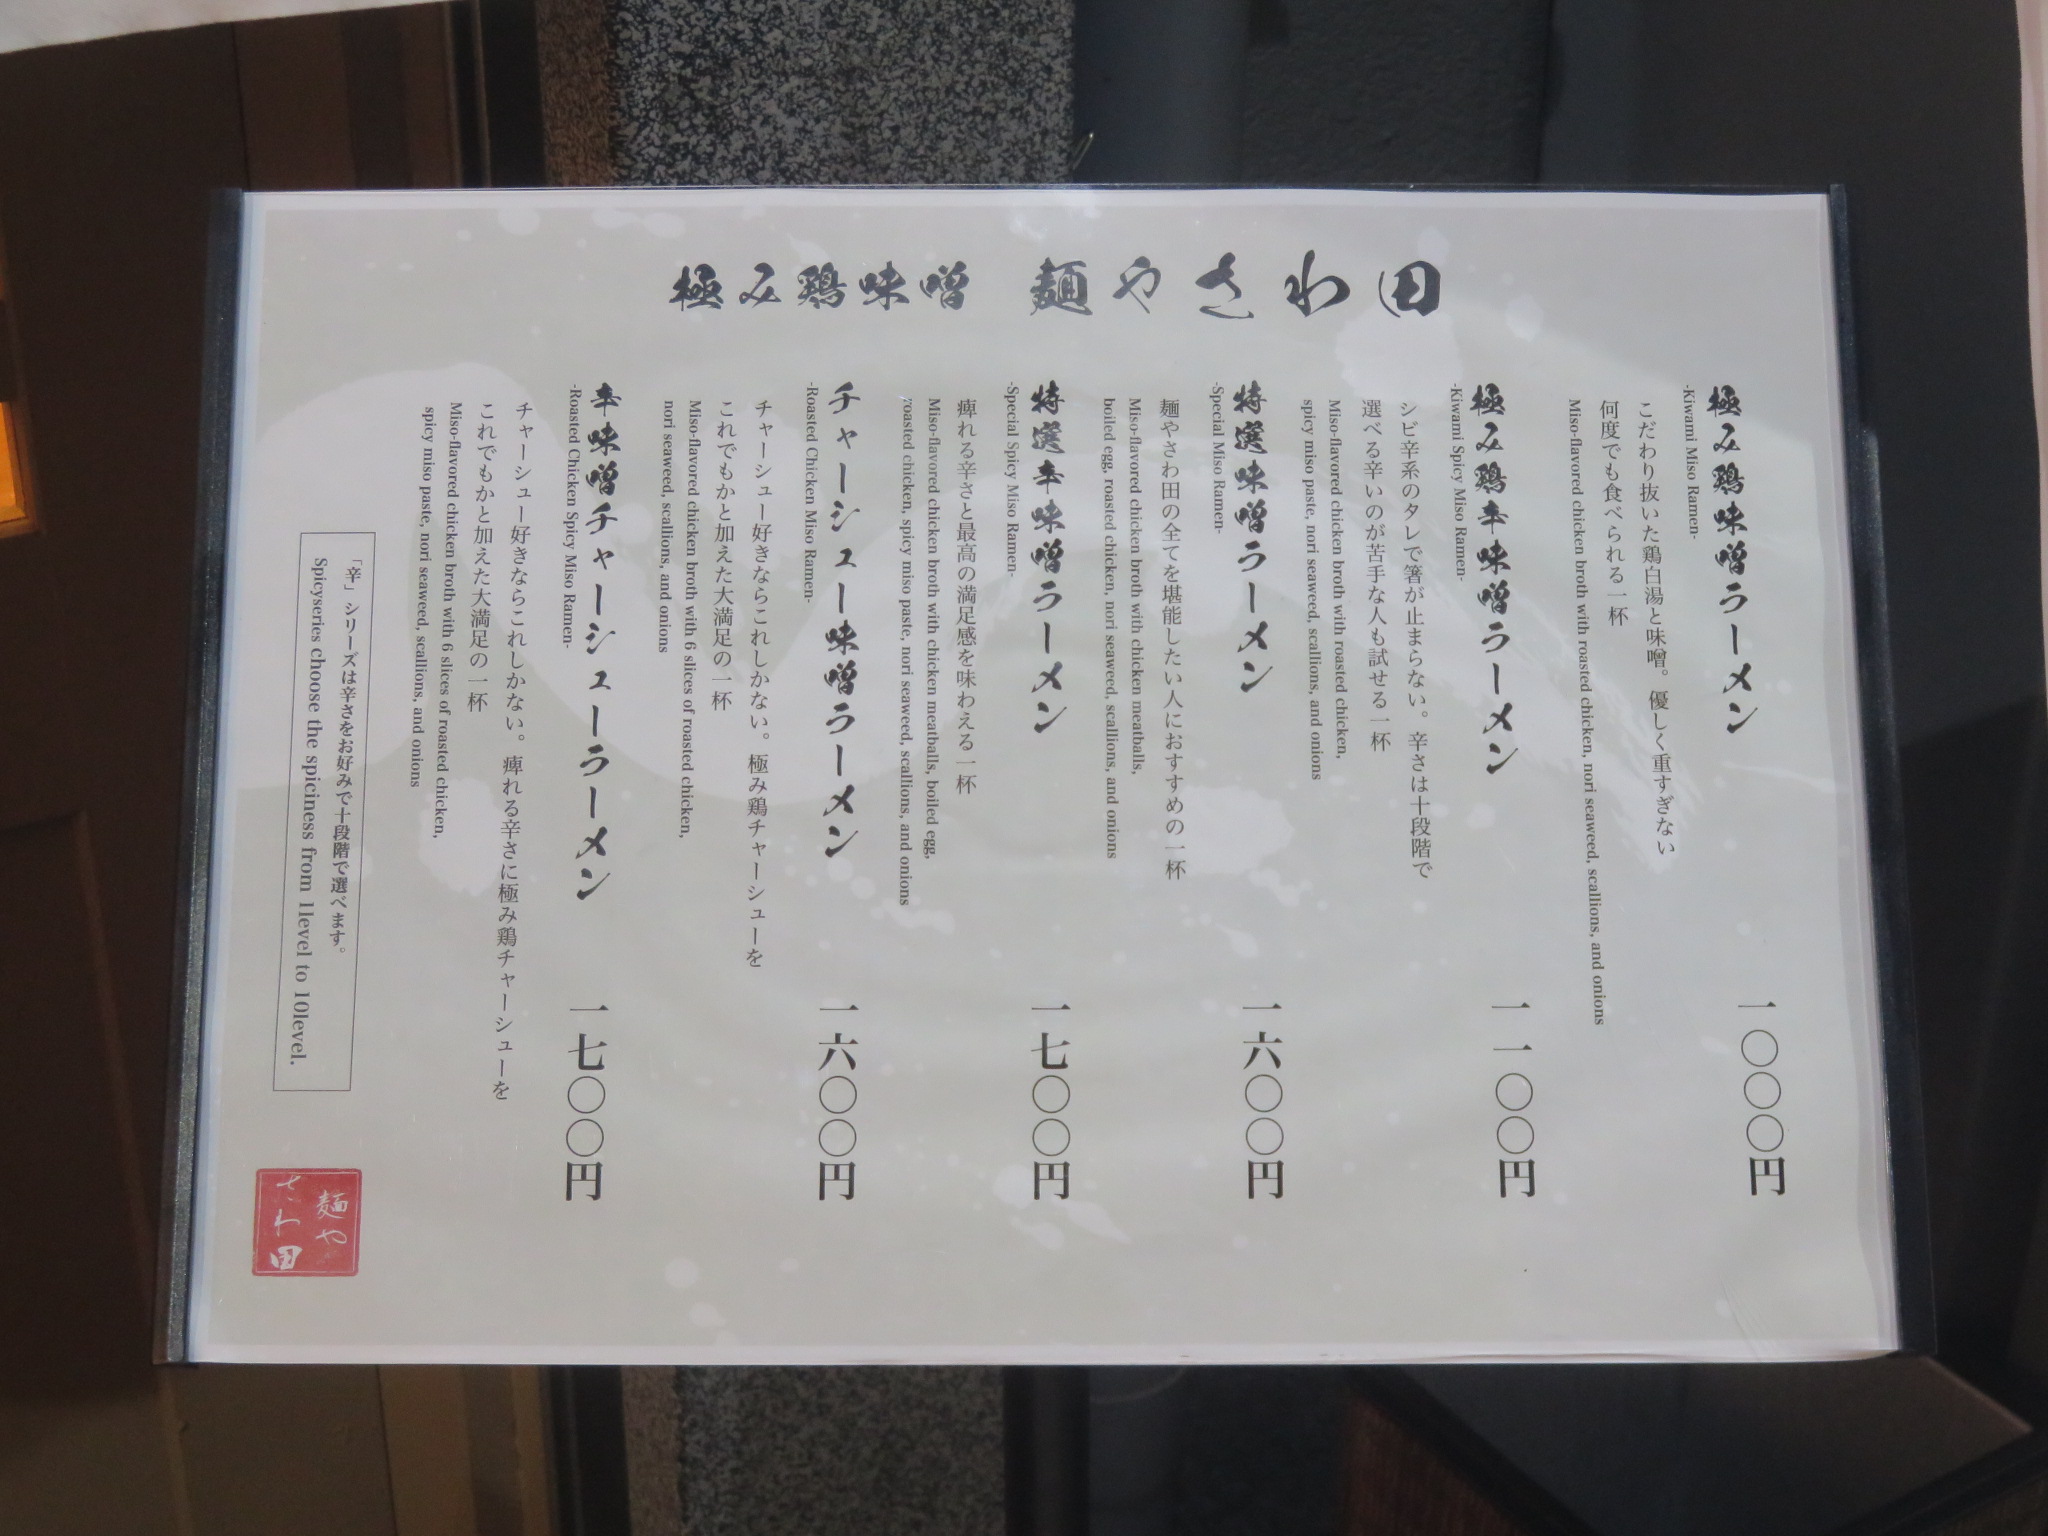 極み鶏味噌 麺やさわ田
極み鶏味噌ラーメン
一〇〇〇円
-Kiwami Miso Ramen-
こだわり抜いた鶏白湯と味噌。優しく重すぎない
何度でも食べられる一杯
Miso-flavored chicken broth with roasted chicken, nori seaweed, scallions, and onions
極み鶏辛味噌ラーメン
一一〇〇円
-Kiwami Spicy Miso Ramen-
シビ辛系のタレで箸が止まらない。辛さは十段階で
選べる辛いのが苦手な人も試せる一杯
Miso-flavored chicken broth with roasted chicken,
spicy miso paste, nori seaweed, scallions, and onions
特選味噌ラーメン
一六〇〇円
-Special Miso Ramen-
麺やさわ田の全てを堪能したい人におすすめの一杯
Miso-flavored chicken broth with chicken meatballs,
boiled egg, roasted chicken, nori seaweed, scallions, and onions
特選辛味噌ラーメン
一七〇〇円
-Special Spicy Miso Ramen-
痺れる辛さと最高の満足感を味わえる一杯
Miso-flavored chicken broth with chicken meatballs, boiled egg,
roasted chicken, spicy miso paste, nori seaweed, scallions, and onions
チャーシュー味噌ラーメン
一六〇〇円
-Roasted Chicken Miso Ramen-
チャーシュー好きならこれしかない。極み鶏チャーシューを
これでもかと加えた大満足の一杯
Miso-flavored chicken broth with 6 slices of roasted chicken,
nori seaweed, scallions, and onions
辛味噌チャーシューラーメン
一七〇〇円
-Roasted Chicken Spicy Miso Ramen-
チャーシュー好きならこれしかない。痺れる辛さに極み鶏チャーシューを
これでもかと加えた大満足の一杯
Miso-flavored chicken broth with 6 slices of roasted chicken,
spicy miso paste, nori seaweed, scallions, and onions
「辛」シリーズは辛さをお好みで十段階で選べます。
Spicyseries choose the spiciness from 1level to 10level.
麺や
さわ田